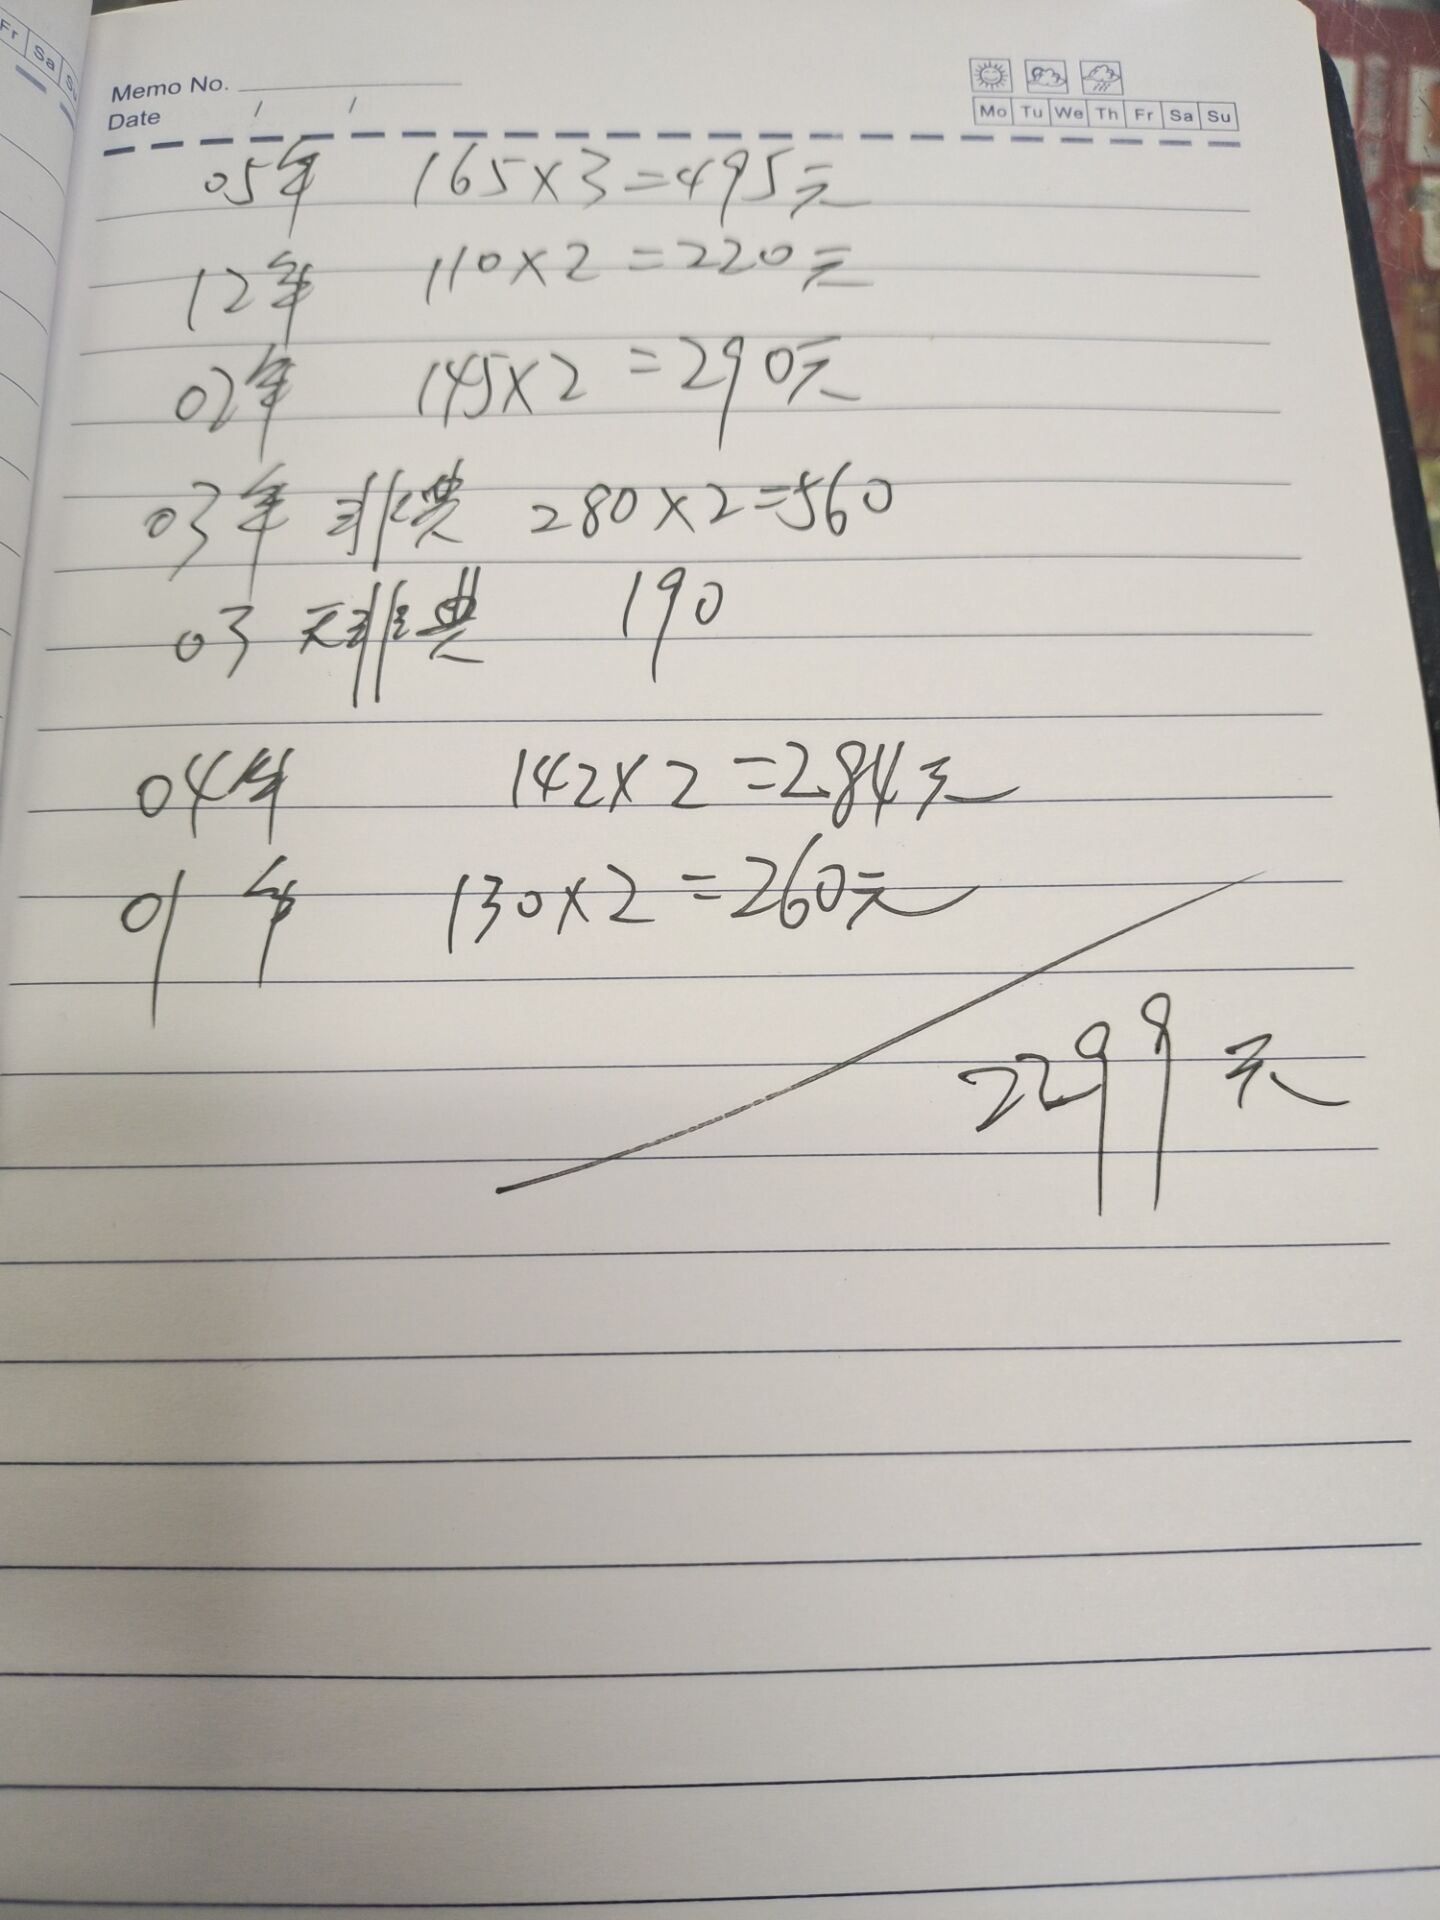 Fr Sa
Memo No.
Date / /
Mo Tu We Th Fr Sa Su
05年 165×3=495元
12年 110×2=220元
02年 145×2=290元
03年 非典 280×2=560
03 无非典 190
04年 142×2=284元
01年 130×2=260元
2299元